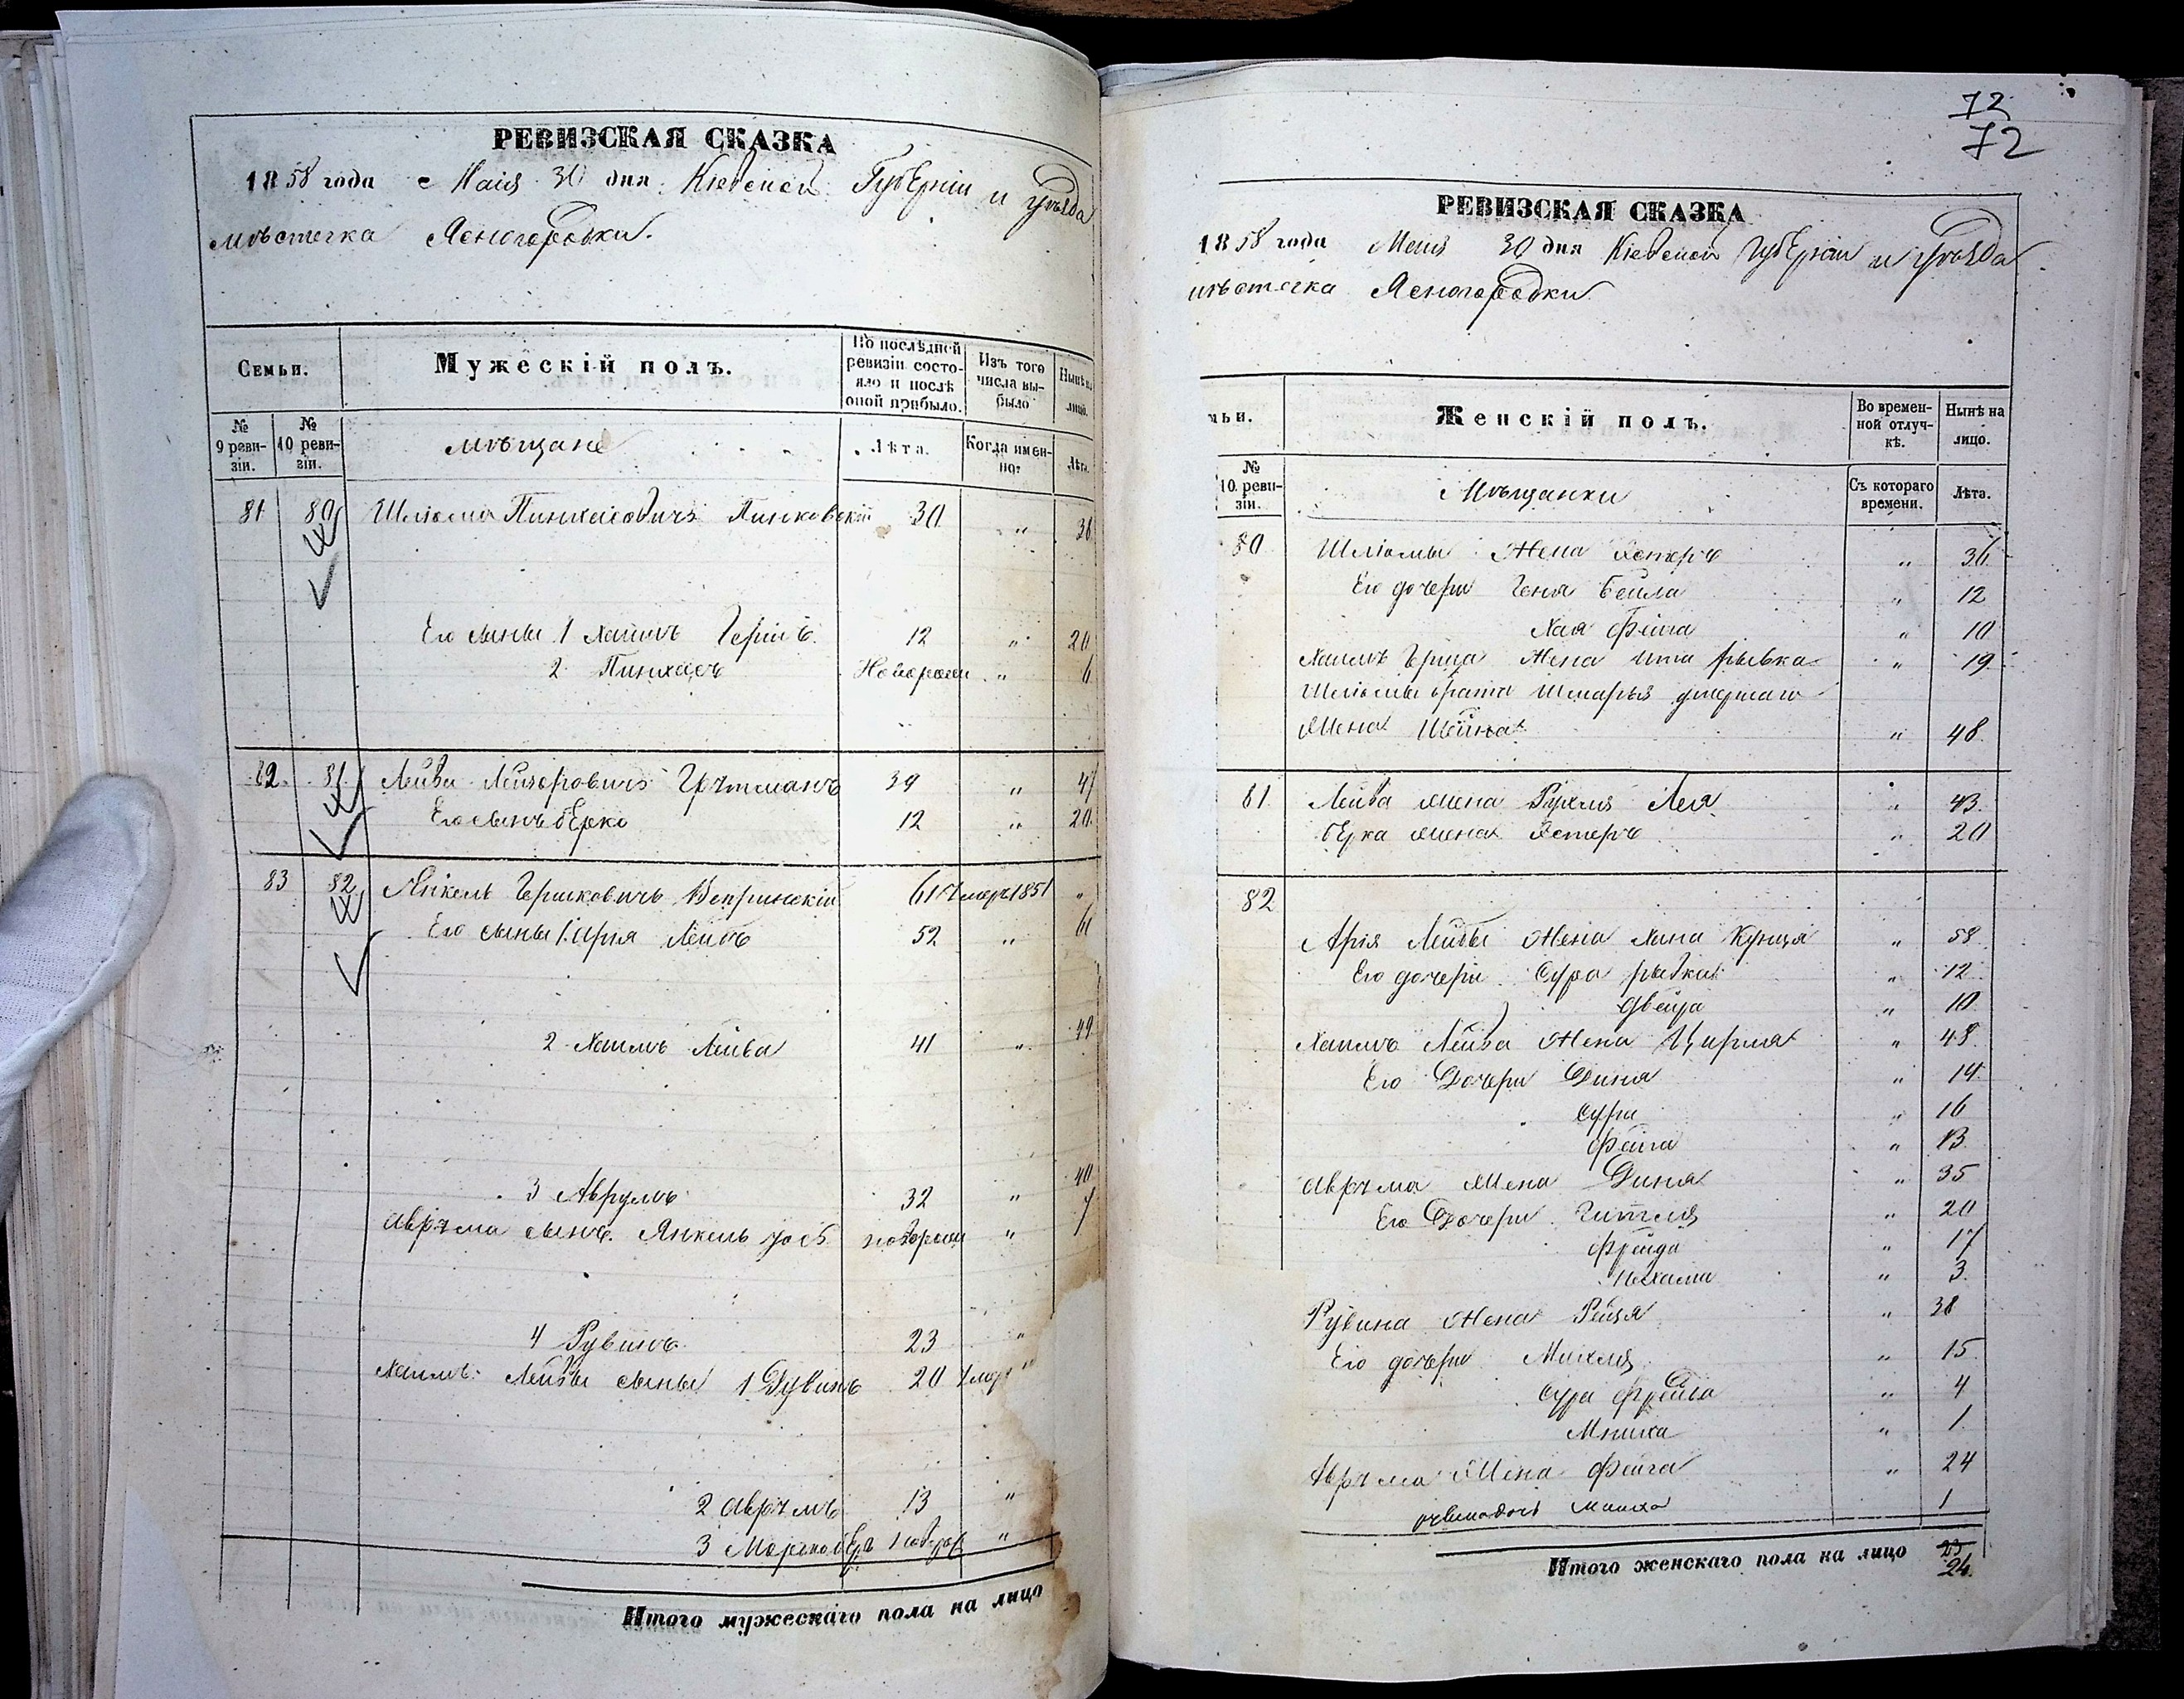 РЕВИЗСКАЯ СКАЗКА
1858 года Маія 30 дня Кіевской Губерніи и уѣзда
мѣстечка Ясногородки.
Семьи.
Мужескій полъ.
По послѣдней ревизіи состояло и послѣ оной прибыло.
Изъ того числа выбыло
Нынѣ на лицо.
№ 9 ревизіи.
№ 10 ревизіи.
мѣщане
Лѣта.
Когда именно?
Лѣта.
81 80 Шліома Пинхасовичъ Пинковскій 30 " 38
Его сыны 1 Хаимъ Гершъ 12 " 20
2 Пинхасъ Новорожд " 6
82. 81 Лейба Лейзеровичъ Гутманъ 39 " 47
Его сынъ Берко 12 " 20
83 82 Янкель Гершковичъ Вепринскій 61 умеръ 1851 "
Его сыны 1. Арія Лейбъ 52 " 61
2 Хаимъ Лейба 41 " 49
3 Аврумъ 32 " 40
Аврума сынъ Янкель новорожд " 7
4 Рувинъ 23 "
Хаимъ Лейбы сыны 1 Рувинъ 20 "
2 Аврумъ 13 "
3 "
Итого мужескаго пола на лицо
72
72
РЕВИЗСКАЯ СКАЗКА
1858 года Маія 30 дня Кіевской Губерніи и уѣзда
мѣстечка Ясногородки
мьи.
Женскій полъ.
Во временной отлучкѣ.
Нынѣ на лицо.
№ 10 ревизіи.
Мѣщанки
Съ котораго времени.
Лѣта.
80 Шліомы Жена Эстеръ " 36
Его дочери Геня Бейла " 12
Хая Фейга " 10
Хаимъ Герша Жена Ита Рывка " 19
Шліомы брата Шмарья умершаго
Жена Шейна " 48
81 Лейба жена Рухля Лея " 43
Берка жена Эстеръ " 20
82
Арія Лейбы Жена Хана " 58
Его дочери Сура Рывка " 12
Двейра " 10
Хаимъ Лейба Жена Цирля " 48
Его Дочери Диня " 19
Сура " 16
Фейга " 13
Аврума Жена Диня " 35
Его Дочери Гитля " 20
Фрейда " 17
Нехама " 3
Рувина Жена Рейзя " 38
Его дочери Михля " 15
Сура Фрейда " 4
" 1
Аврума Жена Фейга " 24
1
Итого женскаго пола на лицо 23
24